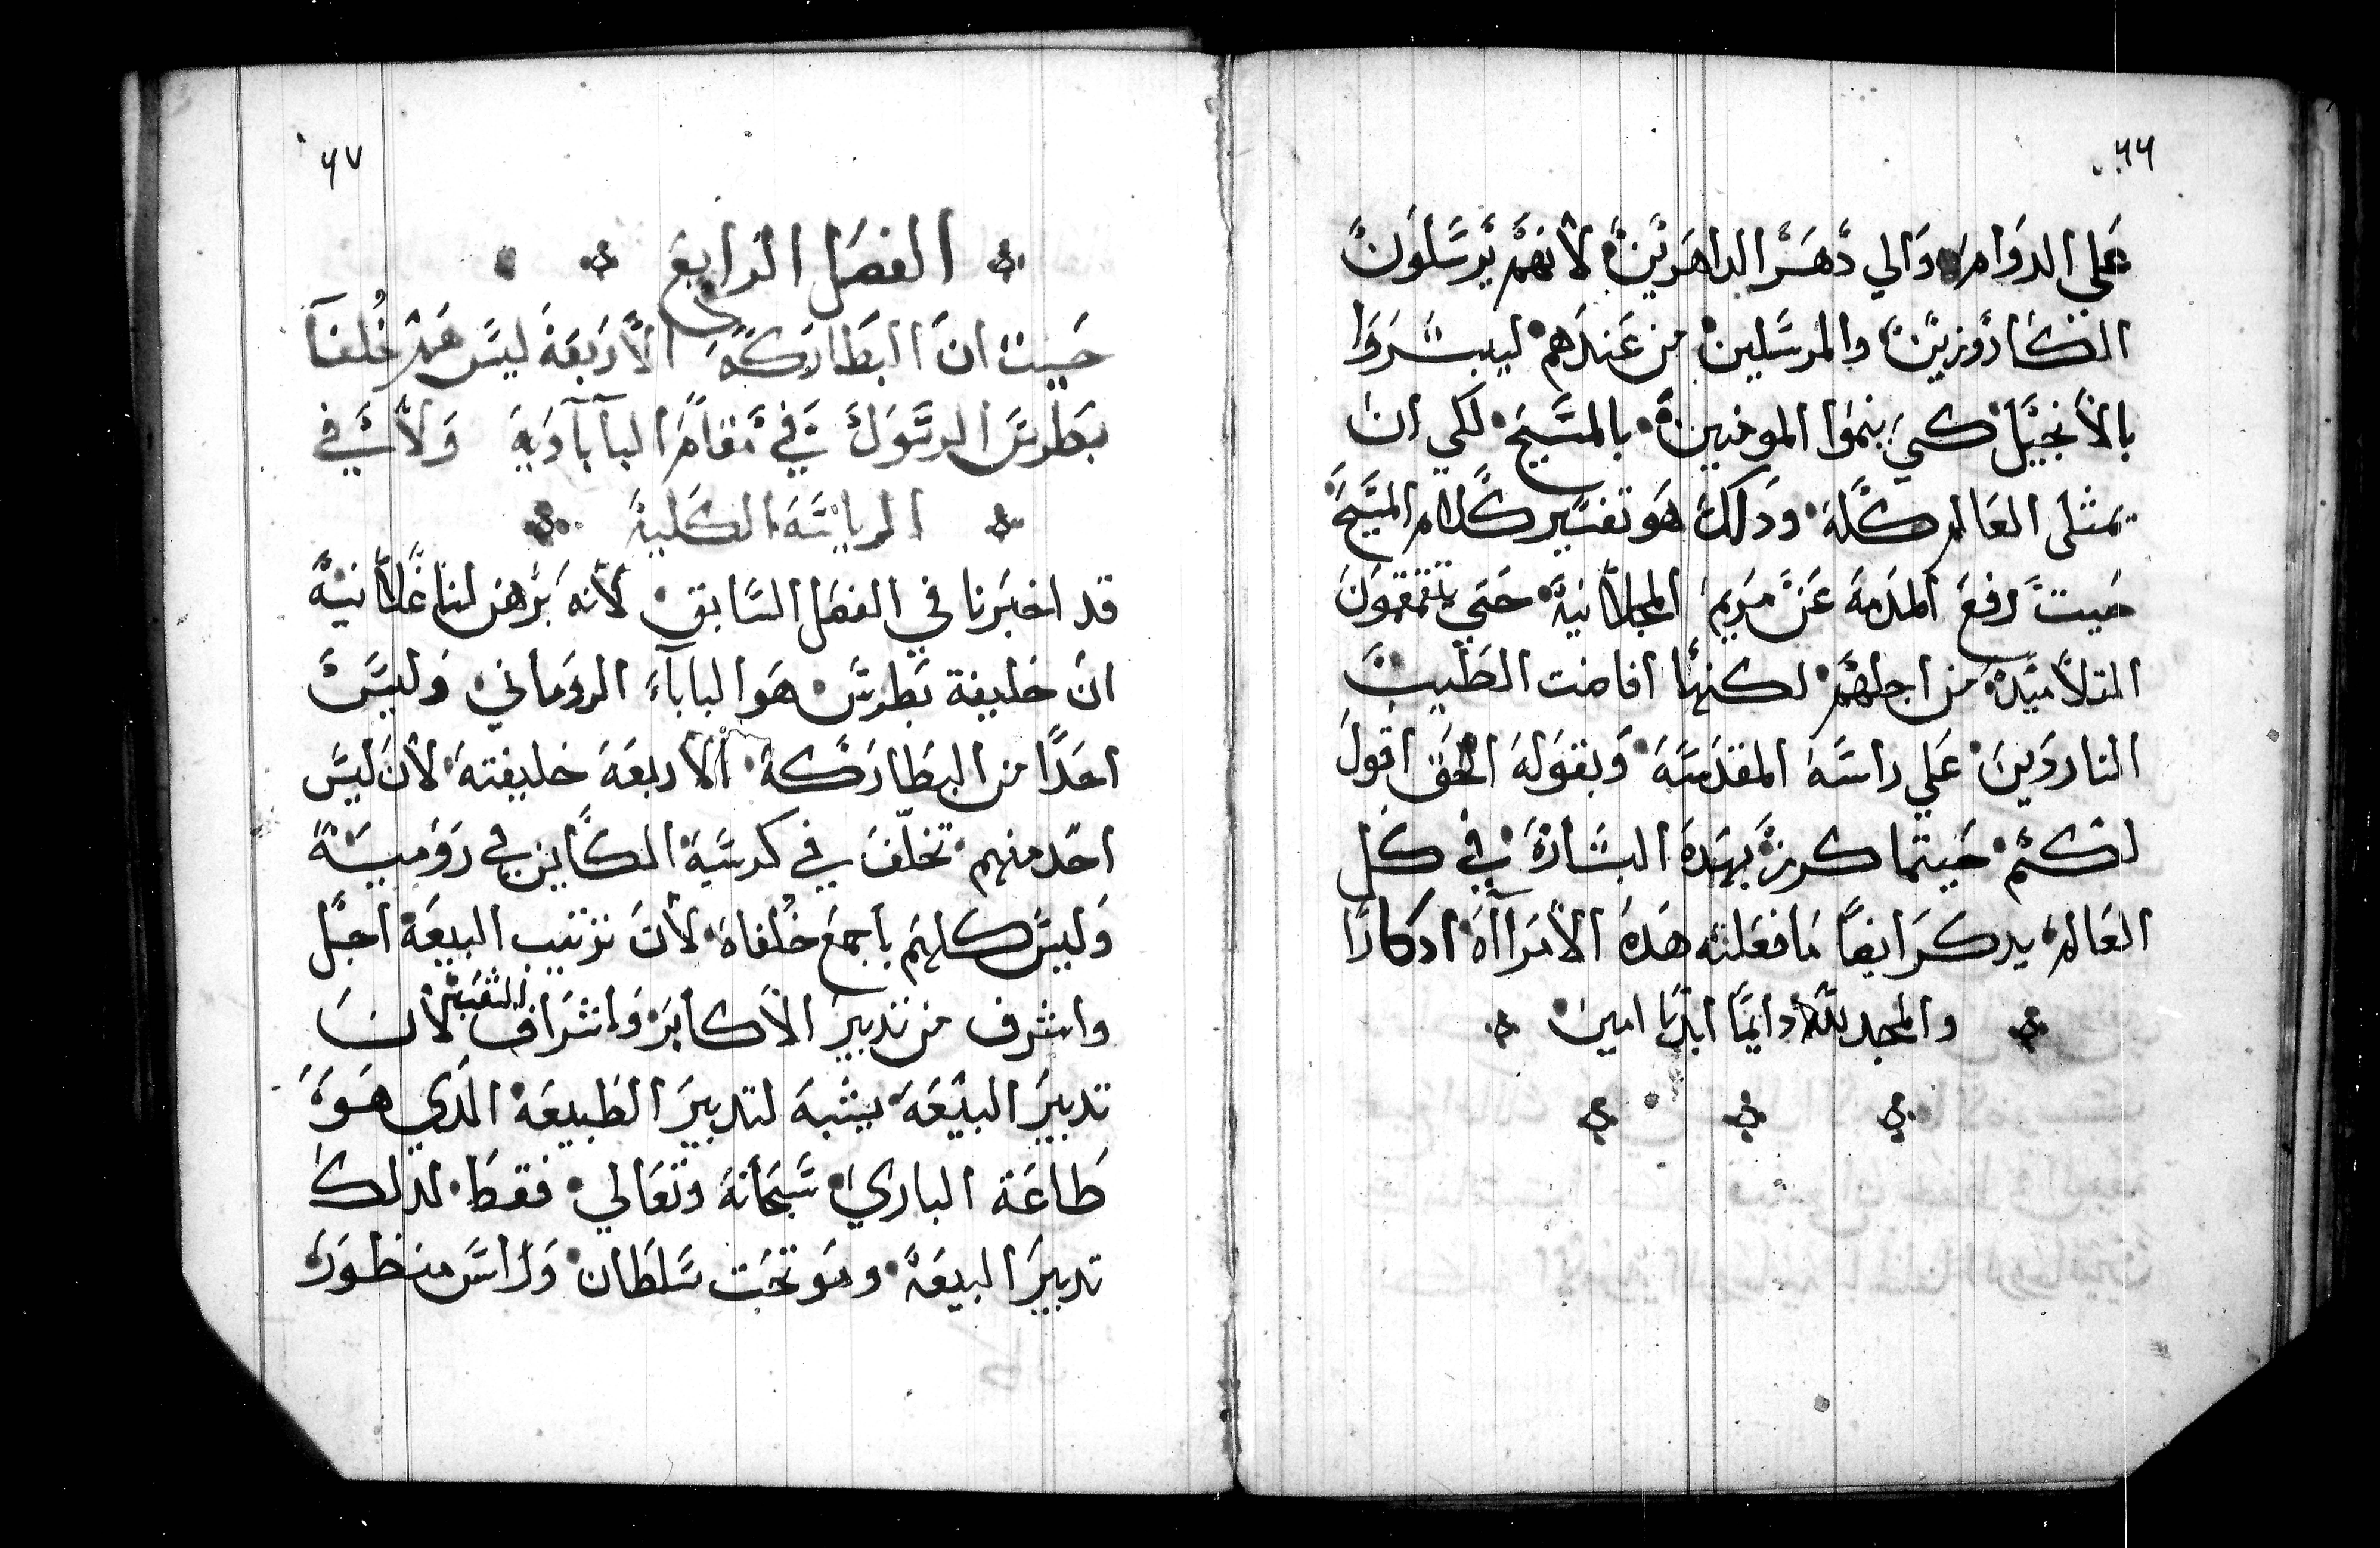 ٦٦
علي الدوام والي دهر الداهرين لانهم يرسلون
الكاروزين والمرسلين من عندهم ليبشروا
بالانجيل كي ينموا المومنين بالمسيح لكي ان
يمتلى العالم كله ودلك هو تفسير كلام المسيح
حيت رفع المدمه عن مريم المجدلانية حتي يتقمقمون
التلاميد من اجلهم لكنها افاضت الطيب
الناردين علي راسه المقدسه وبقوله الحق اقول
لكم حيتما كرز بهده البشارة في كل
العالم يدكر ايضا ما فعلته هده الامرااه ادكارا
والمجد لله دايما ابديا امين
٦٧
الفصل الرابع
حيت ان البطاركة الاربعة ليس هم خلفا
بطرس الرسول في مقام الباباوية ولا في
الرياسة الكلية
قد اخبرنا في الفصل السابق لانه برهن لنا علانية
ان خليفة بطرس هو الباباء الروماني وليس
احدا من البطاركة الاربعة خليفته لان ليس
احد منهم تخلف في كرسية الكاين في رومية
وليس كلهم باجمع خلفاه لان ترتيب البيعة اجل
واشرف من تدبير الاكابر واشراف الشعب لان
تدبير البيعة يشبه لتدبير الطبيعة الدي هو
طاعة الباري سبحانه وتعالي فقط لدلك
تدبير البيعة وهو تحت سلطان وراس منظور